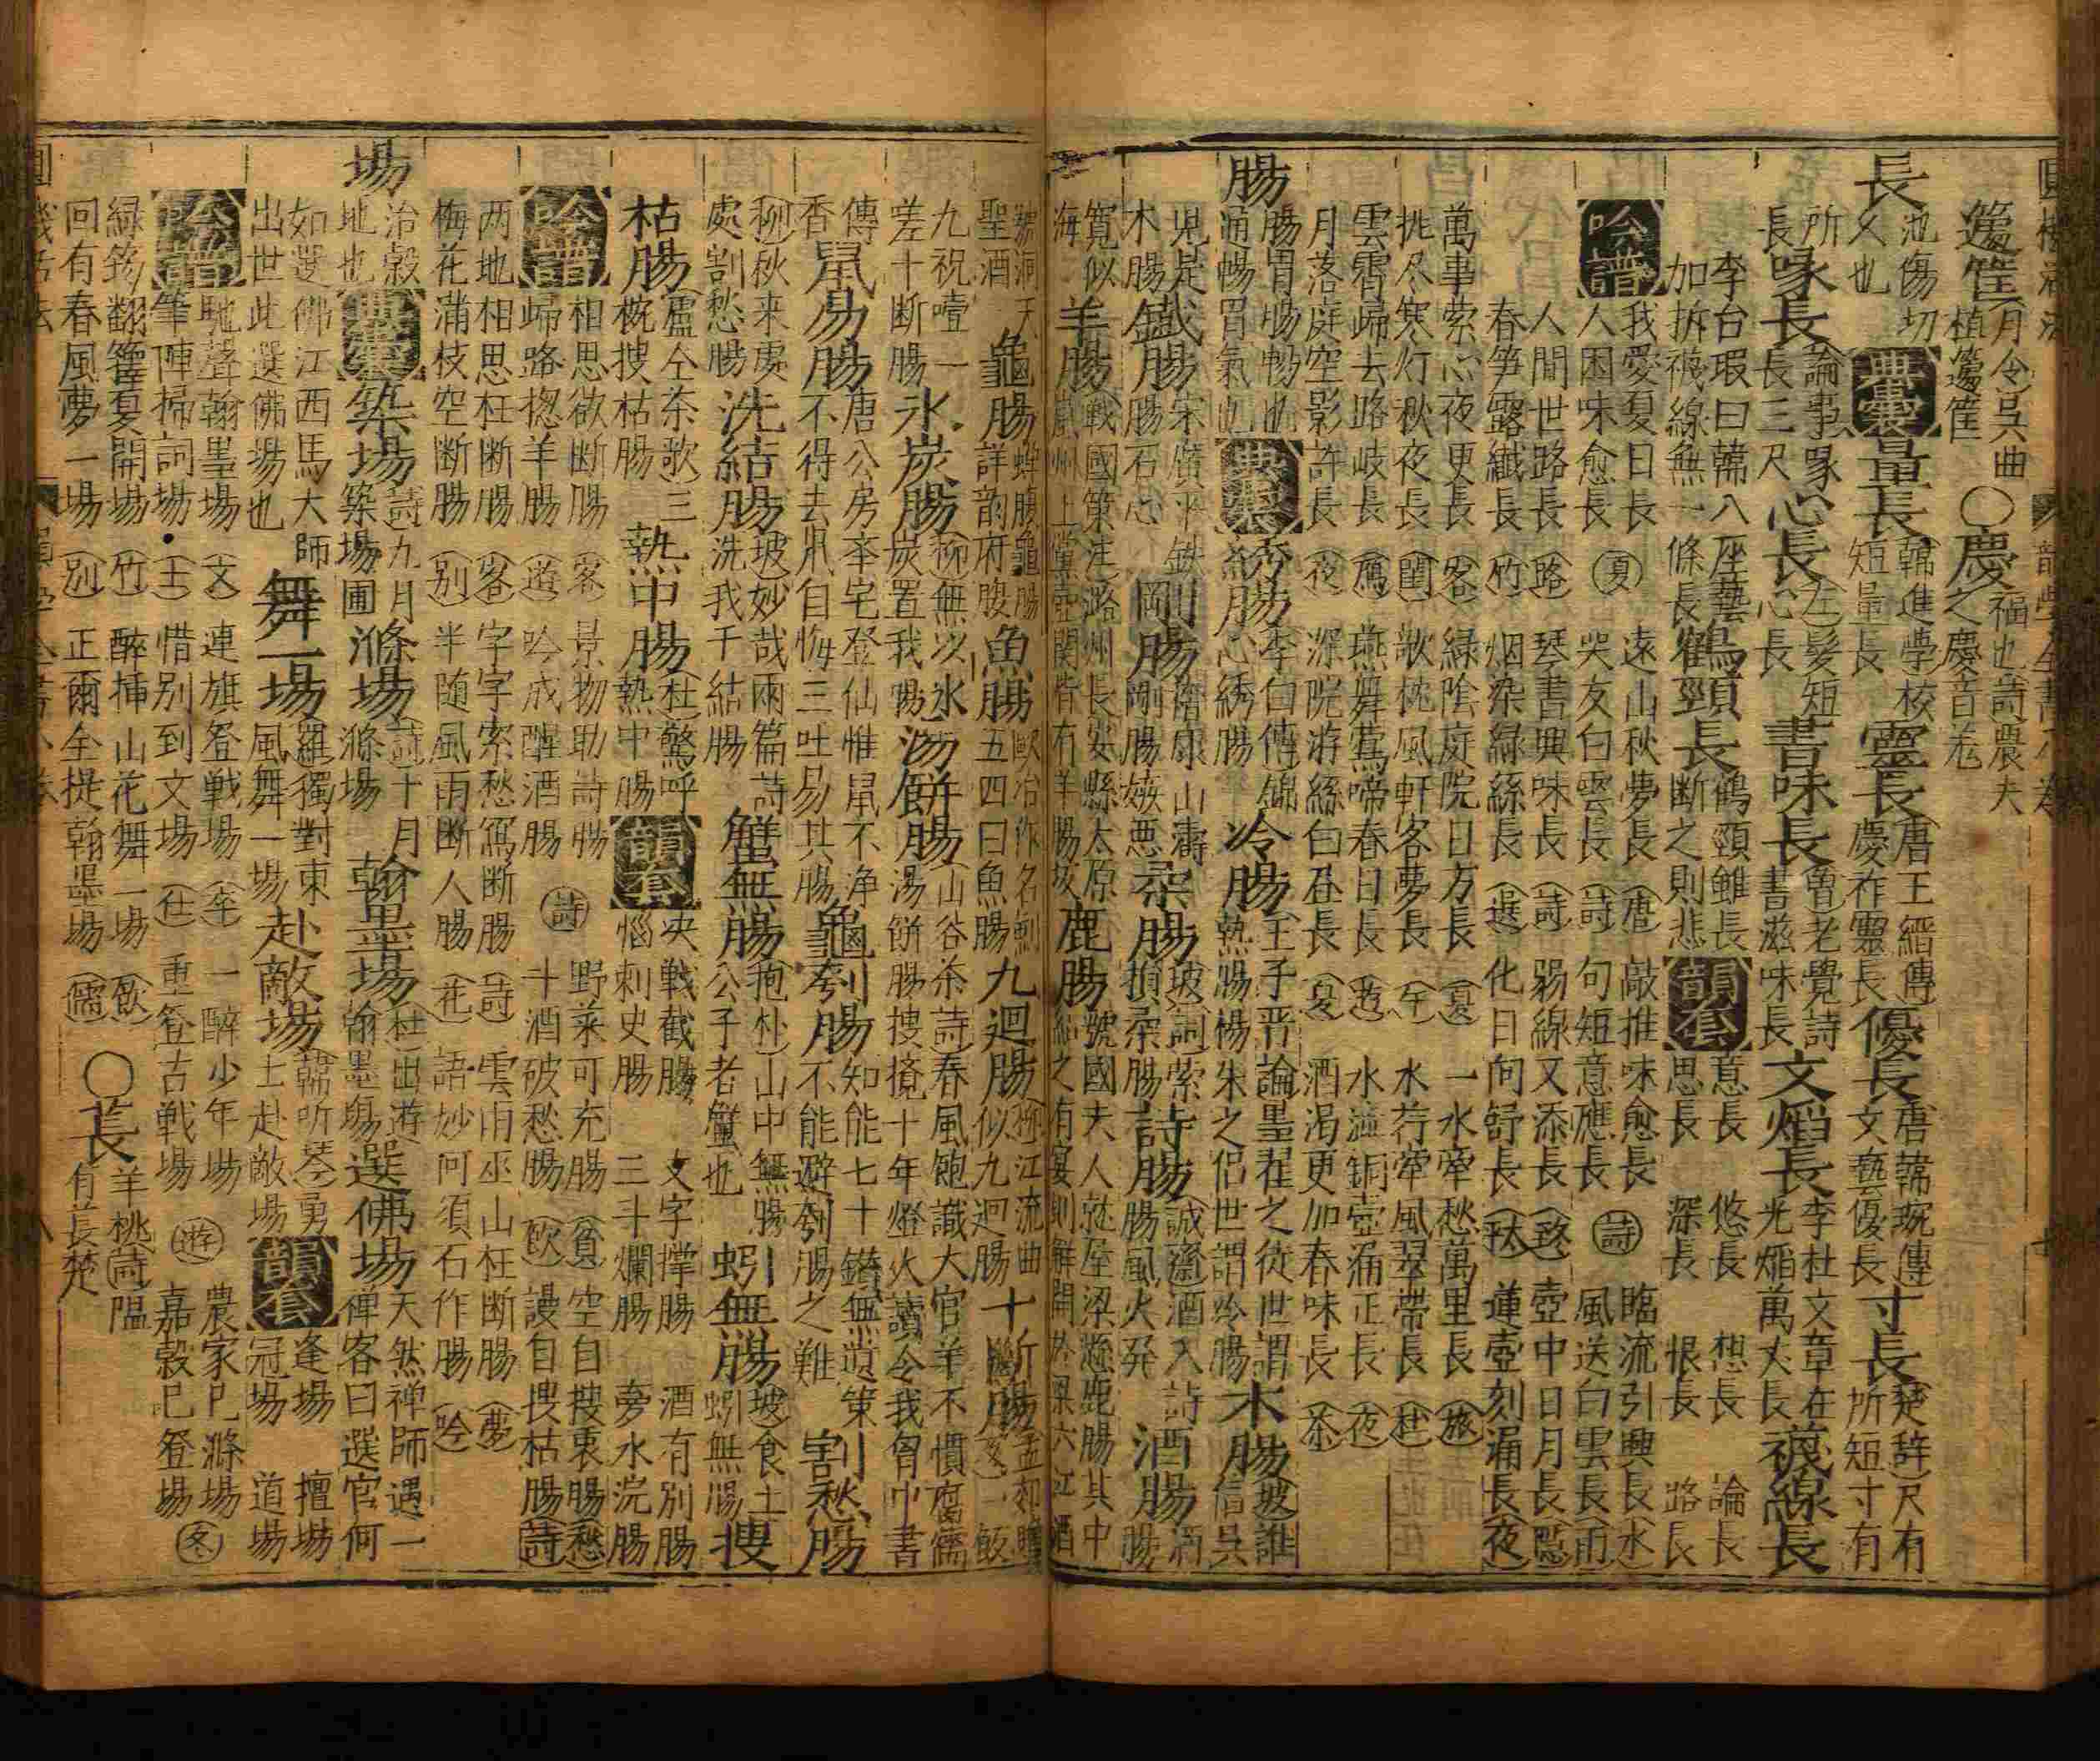 籧筐
月令具曲
植籧筐
○慶
福也詩農夫
之慶音羌
長
池傷切
乂也
典囊
量長
韓進學校
短量長
靈長
唐王縉傳
慶祚靈長
優長
唐韓琬傳
文藝優長
寸長
楚辞尺有
所短寸有
所長
喙長
論事喙
長三尺
心長
左髮短
心長
書味長
魯老覺詩
書滋味長
文熖長
李杜文章在
光熖萬丈長
襪線長
李台瑕曰韓八座藝
加拆襪線無一條長
鶴頸長
鶴頸雖長
断之則悲
韻套
意長
思長
悠長
深長
想長
恨長
論長
路長
吟譜
我愛夏日長
人困味愈長
夏
遠山秋夢長
哭友白雲長
唐
詩
敲推味愈長
句短意應長
詩
臨流引興長
風送白雲長
水
雨
人間世路長
春笋露纖長
路
竹
琴書興味長
烟染綠絲長
詩
選
弱線又添長
化日向舒長
壺中日月長
蓮壺刻漏長
隱
夜
萬事縈心夜更長
挑尽寒灯秋夜長
客
閨
綠陰庭院日方長
欹枕風軒客夢長
夏
午
一水牽愁萬里長
水荇牽風翠帶長
旅
杜
雲霄歸去路岐長
月落庭空影許長
鴈
夜
燕舞鶯啼春日長
深院游絲白昼長
遊
夏
水溢銅壺漏正長
酒渴更加春味長
夜
茶
腸
腸胃暢暢也
通暢胃氣也
典囊
綉腸
李白傳錦
心綉腸
冷腸
王子晋論墨翟之徒世謂
熱腸楊朱之侶世謂冷腸
木腸
坡誰
信吴
児是
木腸
鐵腸
宋廣平鉄
腸石心
剛腸
嵇康山濤
剛腸嫉悪
柔腸
坡詞縈
損柔腸
詩腸
誠齋酒入詩
腸風火発
酒腸
酒腸
寛似
海
羊腸
戰國策注潞州長安縣太原
嵐州上黨壺關皆有羊腸坂
鹿腸
號國夫人
聖酒
龜腸
蟬腹龜腸
詳韵府腹
魚腸
歐冶作名劍
五四曰魚腸
九迴腸
柳江流曲
似九迴腸
十断腸
一飯
九祝噎一
差十断腸
氷炭腸
柳無以氷
炭置我腸
湯餅腸
山谷茶詩春風飽識大官羊不慣腐儒
湯餅腸搜攪十年燈火讀令我胷中書
傳
香
鼠易腸
唐公房举宅登仙惟鼠不净
不得去鼡自悔三吐易其腸
龜刳腸
知能七十鑽無遺策
不能避刳腸之難
割愁腸
柳秋来
處割愁腸
洗結腸
坡妙哉兩篇詩
洗我千結腸
蟹無腸
抱朴山中無腸
公子者蟹也
蚓無腸
坡食土
蚓無腸
搜
枯腸
盧仝茶歌三
椀搜枯腸
熱中腸
杜驚呼
熱中腸
韻套
决戦截腸
惱刺史腸
文字撑腸
三斗爛腸
酒有別腸
旁水浣腸
吟譜
相思欲断腸
歸路揔羊腸
客
遊
景物助詩腸
吟成醒酒腸
詩
野菜可充腸
斗酒破愁腸
貧
飲
空自搜衷腸
謾自搜枯腸
愁
詩
两地相思枉断腸
梅花蒲枝空断腸
客
別
字字索愁寫断腸
半随風雨断人腸
詩
花
雲雨巫山枉断腸
語妙何須石作腸
夢
吟
場
治穀
地也
典囊
築場
詩九月
築場圃
滌場
詩十月
滌場
翰墨場
杜出遊
翰墨場
選佛場
天然禅師遇一
禅客曰選官何
如選佛江西馬大師
出世此選佛場也
舞一場
羅獨對東
風舞一場
赴敵場
韓听琴勇
士赴敵場
韻套
逢場
冠場
擅場
道場
吟譜
馳聲翰墨場
筆陣掃詞場
文
士
連旗登戦場
惜別到文場
仕
一醉少年場
重登古戦場
遊
農家已滌場
嘉穀已登場
冬
綠筠翻籜夏開場
回有春風夢一場
竹
別
醉挿山花舞一場
正爾全提翰墨場
飲
儒
○萇
羊桃詩隰
有萇楚